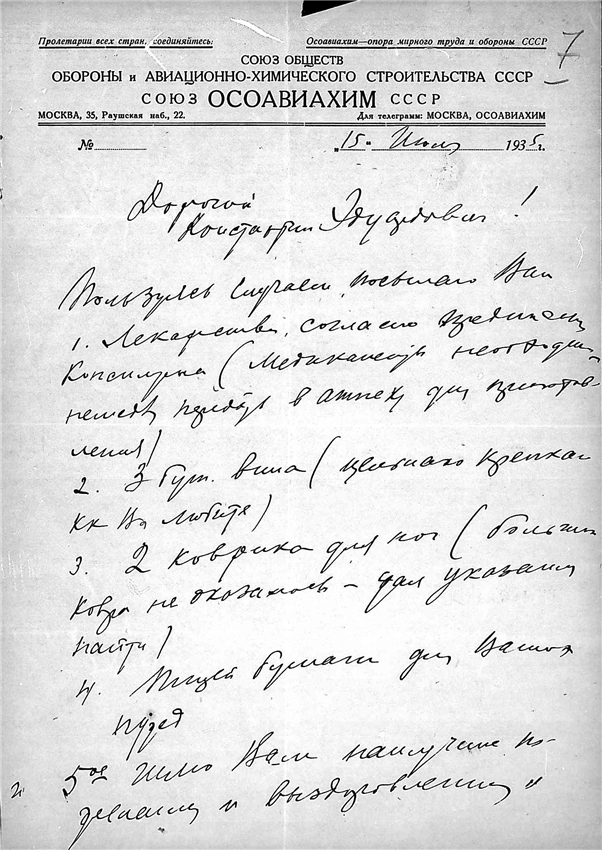 Пролетарии всех стран, соединяйтесь! Осоавиахим—опора мирного труда и обороны СССР
7
СОЮЗ ОБЩЕСТВ
ОБОРОНЫ и АВИАЦИОННО-ХИМИЧЕСКОГО СТРОИТЕЛЬСТВА СССР
СОЮЗ ОСОАВИАХИМ СССР
МОСКВА, 35, Раушская наб., 22. Для телеграмм: МОСКВА, ОСОАВИАХИМ
№ „15“ Июля 1935 г.
Дорогой
Константин Эдуардович!
Пользуясь случаем, посылаю Вам
1. Лекарства, согласно
консилиума (
немедл. пойдут в аптеку для изготов-
ления)
2. 3 бут. вина (цельного крепкаго
кк Вы любите)
3. 2 коврика для ног (больших
ковра не оказалось – дал указания
найти)
4. бумаги для Ваших
5ое Шлю Вам наилучшие по-
желания и выздоровления